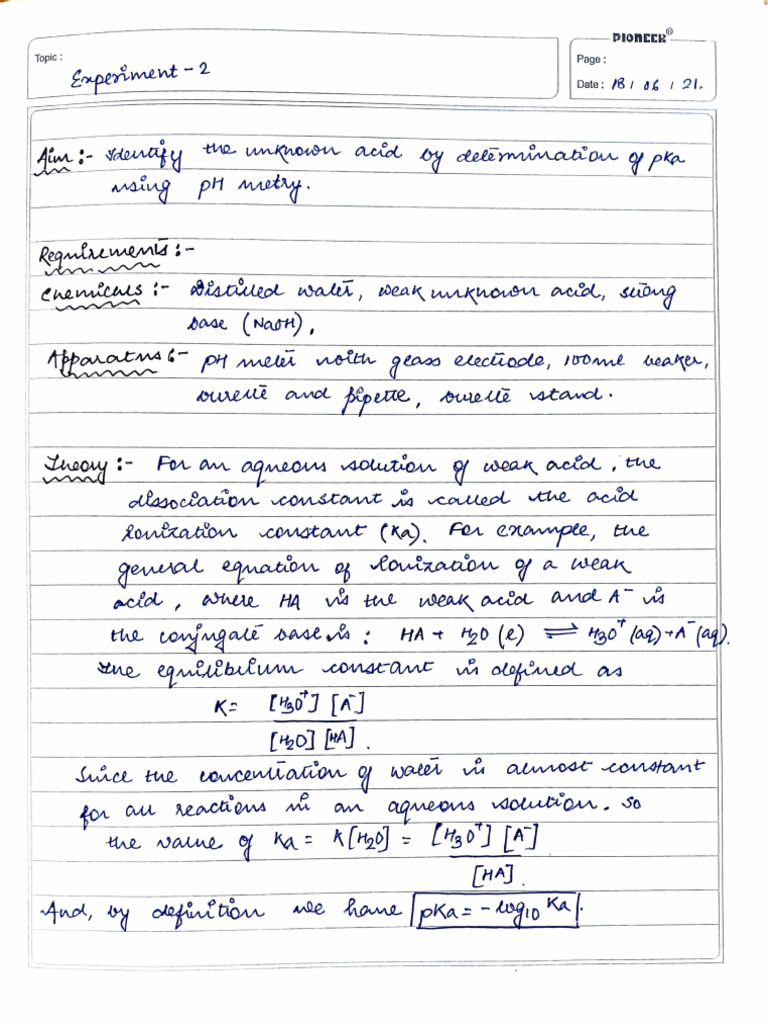 PIONEER®
Topic :
Experiment - 2
Page :
Date : 18 / 06 / 21.
Aim :- Identify the unknown acid by determination of pKa
using pH metry.
Requirements :-
Chemicals :- Distilled water, weak unknown acid, strong
base (NaOH).
Apparatus :- pH meter with glass electrode, 100ml beaker,
burette and pipette, burette stand.
Theory :- For an aqueous solution of weak acid, the
dissociation constant is called the acid
ionization constant (Ka). For example, the
general equation of ionization of a weak
acid, where HA is the weak acid and A⁻ is
the conjugate base is : HA + H2O (l) ⇌ H3O⁺ (aq) + A⁻ (aq).
The equilibrium constant is defined as
K = [H3O⁺] [A⁻]
[H2O] [HA].
Since the concentration of water is almost constant
for all reactions in an aqueous solution. So
the value of Ka = K[H2O] = [H3O⁺] [A⁻]
[HA].
And, by definition we have pKa = -log10 Ka.